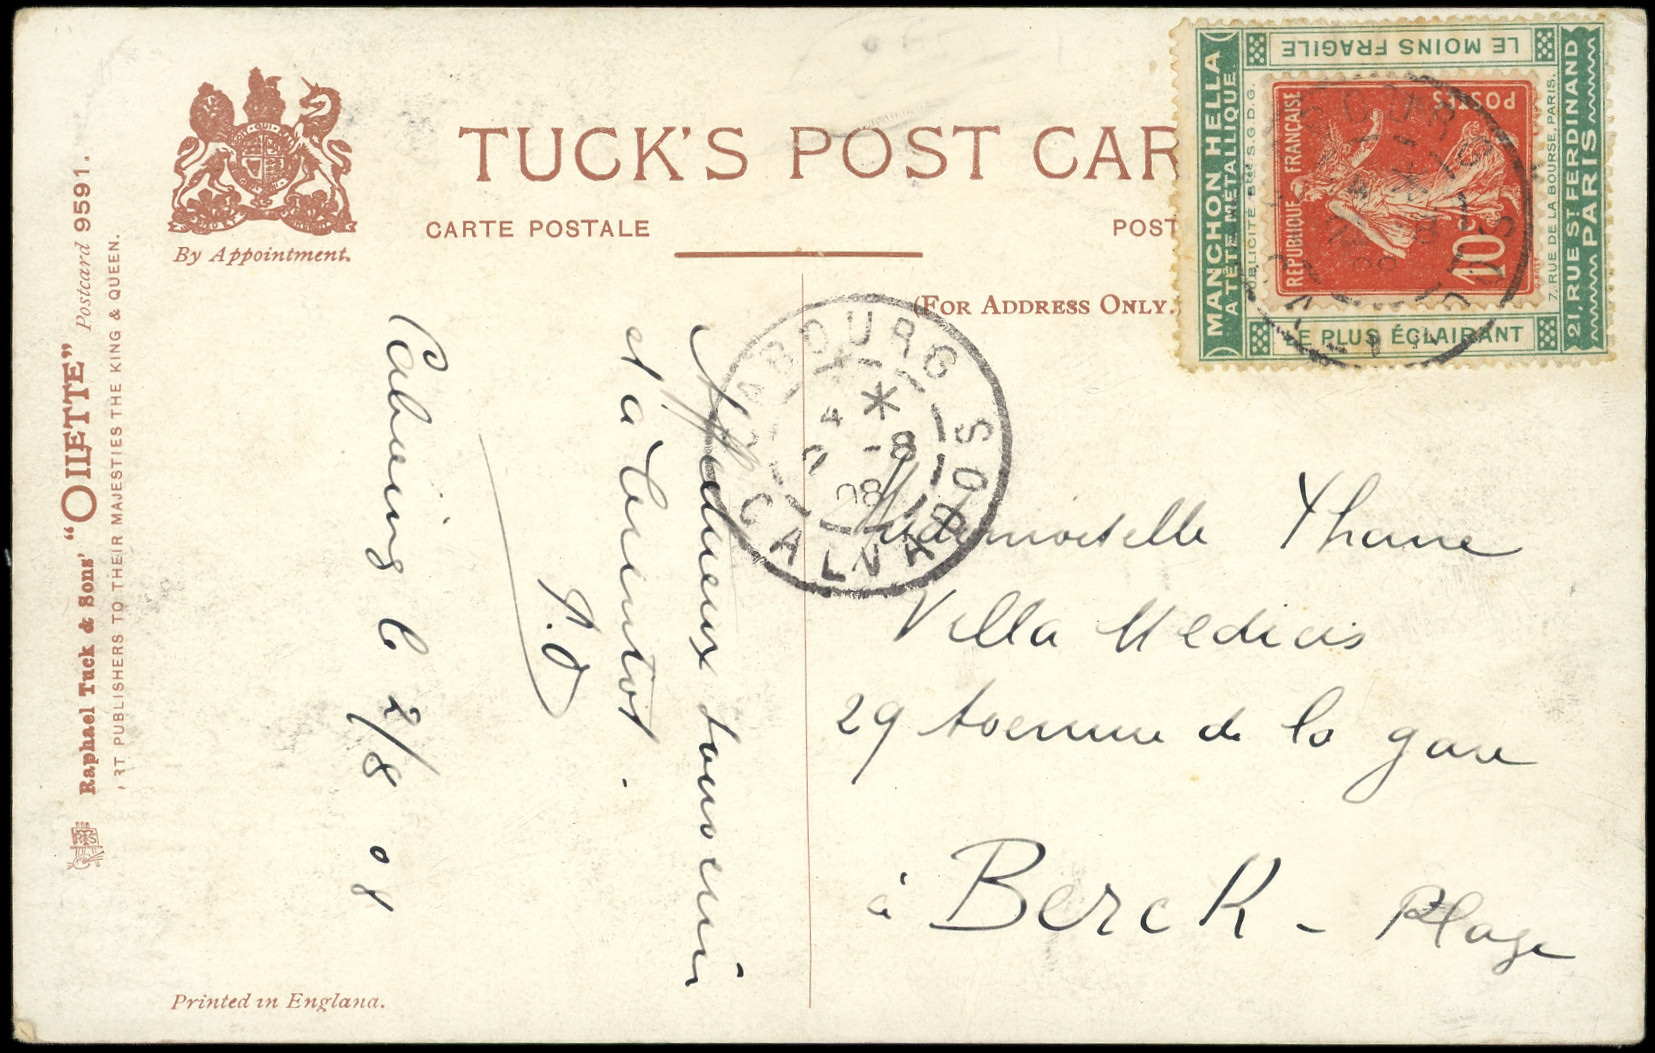 TUCK'S POST CAR
CARTE POSTALE
POST
By Appointment.
(FOR ADDRESS ONLY.
Raphael Tuck & Sons' "OILETTE" Postcard 9591.
RT PUBLISHERS TO THEIR MAJESTIES THE KING & QUEEN.
RTS
Printed in England.
MANCHON HELLA
A TÊTE MÉTALLIQUE
PUBLICITÉ Bté S.G.D.G.
LE MOINS FRAGILE
LE PLUS ÉCLAIRANT
7, RUE DE LA BOURSE, PARIS.
21, RUE ST FERDINAND
PARIS
REPUBLIQUE FRANÇAISE
POSTES
10
CABOURG
-8
08
CALVADOS
Affectueux souvenir
et à bientôt.
Cabourg le 2/8 08
Mademoiselle
Villa Medicis
29 Avenue de la gare
à Berck - Plage